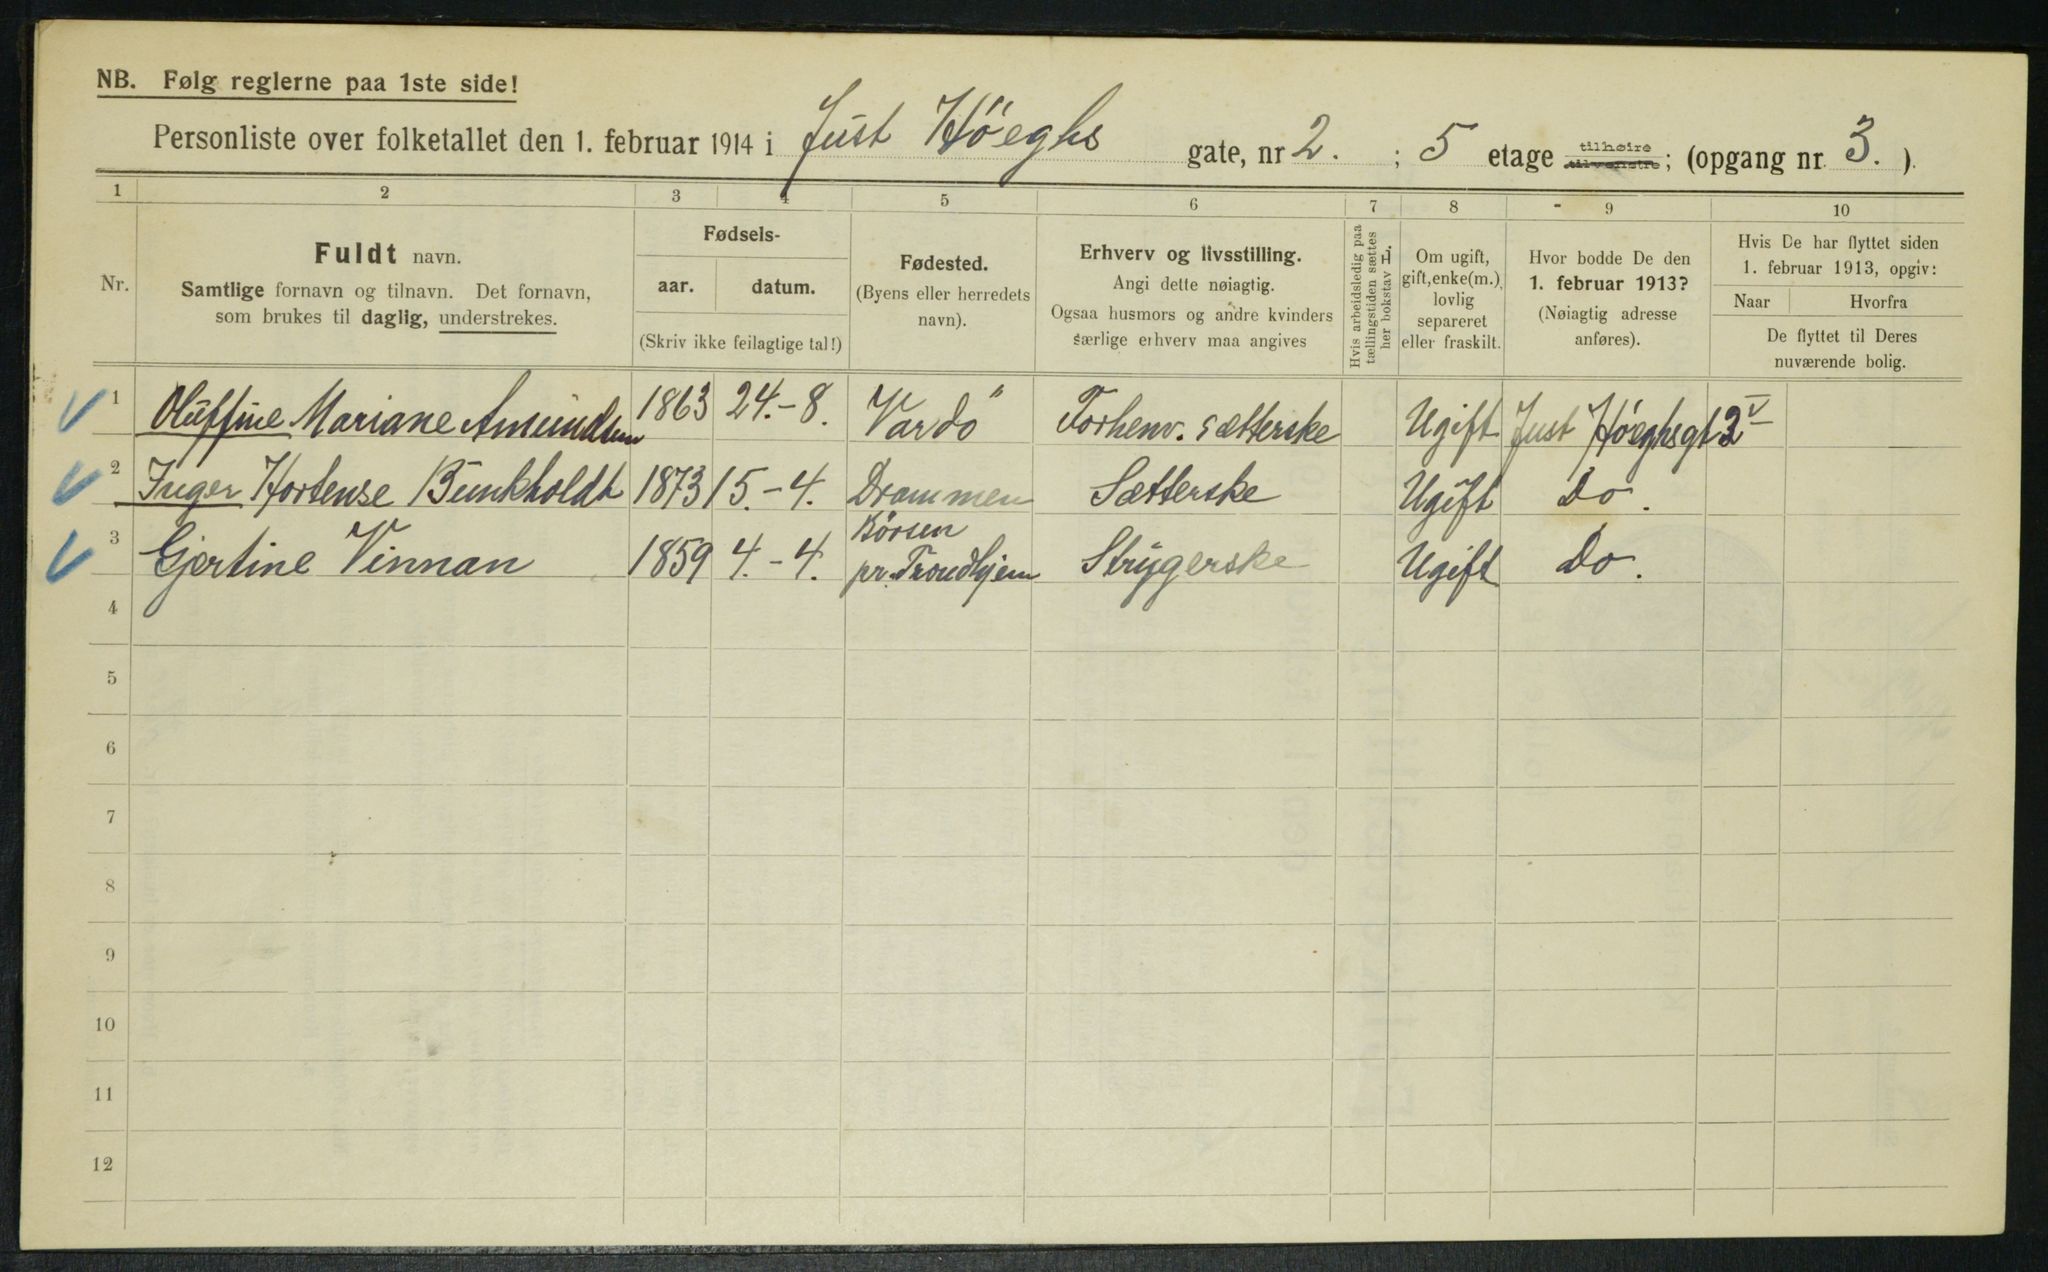 NB. Følg reglerne paa 1ste side!
Personliste over folketallet den 1. februar 1914 i Just Høeghs gate, nr 2. ; 5 etage tilhøire tilvenstre; (opgang nr. 3. ).
1 2 3 4 5 6 7 8 9 10
Nr.
Fuldt navn.
Samtlige fornavn og tilnavn. Det fornavn,
som brukes til daglig, understrekes.
Fødsels-
aar. datum.
(Skriv ikke feilagtige tal!)
Fødested.
(Byens eller herredets
navn).
Erhverv og livsstilling.
Angi dette nøiagtig.
Ogsaa husmors og andre kvinders
særlige erhverv maa angives
Hvis arbeidsledig paa
tællingstiden sættes
her bokstav L.
Om ugift,
gift, enke(m.),
lovlig
separeret
eller fraskilt.
Hvor bodde De den
1. februar 1913?
(Nøiagtig adresse
anføres).
Hvis De har flyttet siden
1. februar 1913, opgiv:
Naar Hvorfra
De flyttet til Deres
nuværende bolig.
1 Oluffine Mariane Amundsen 1863 24.-8. Vardö Forhenv. sætterske Ugift Just Høeghsgt 2 V
2 Inger Hortense Bunkholdt 1873 15.-4. Drammen Sætterske Ugift Do.
3 Gjertine Vinnan 1859 4.-4. Børsen pr. Trondhjem Strygerske Ugift Do.
4
5
6
7
8
9
10
11
12